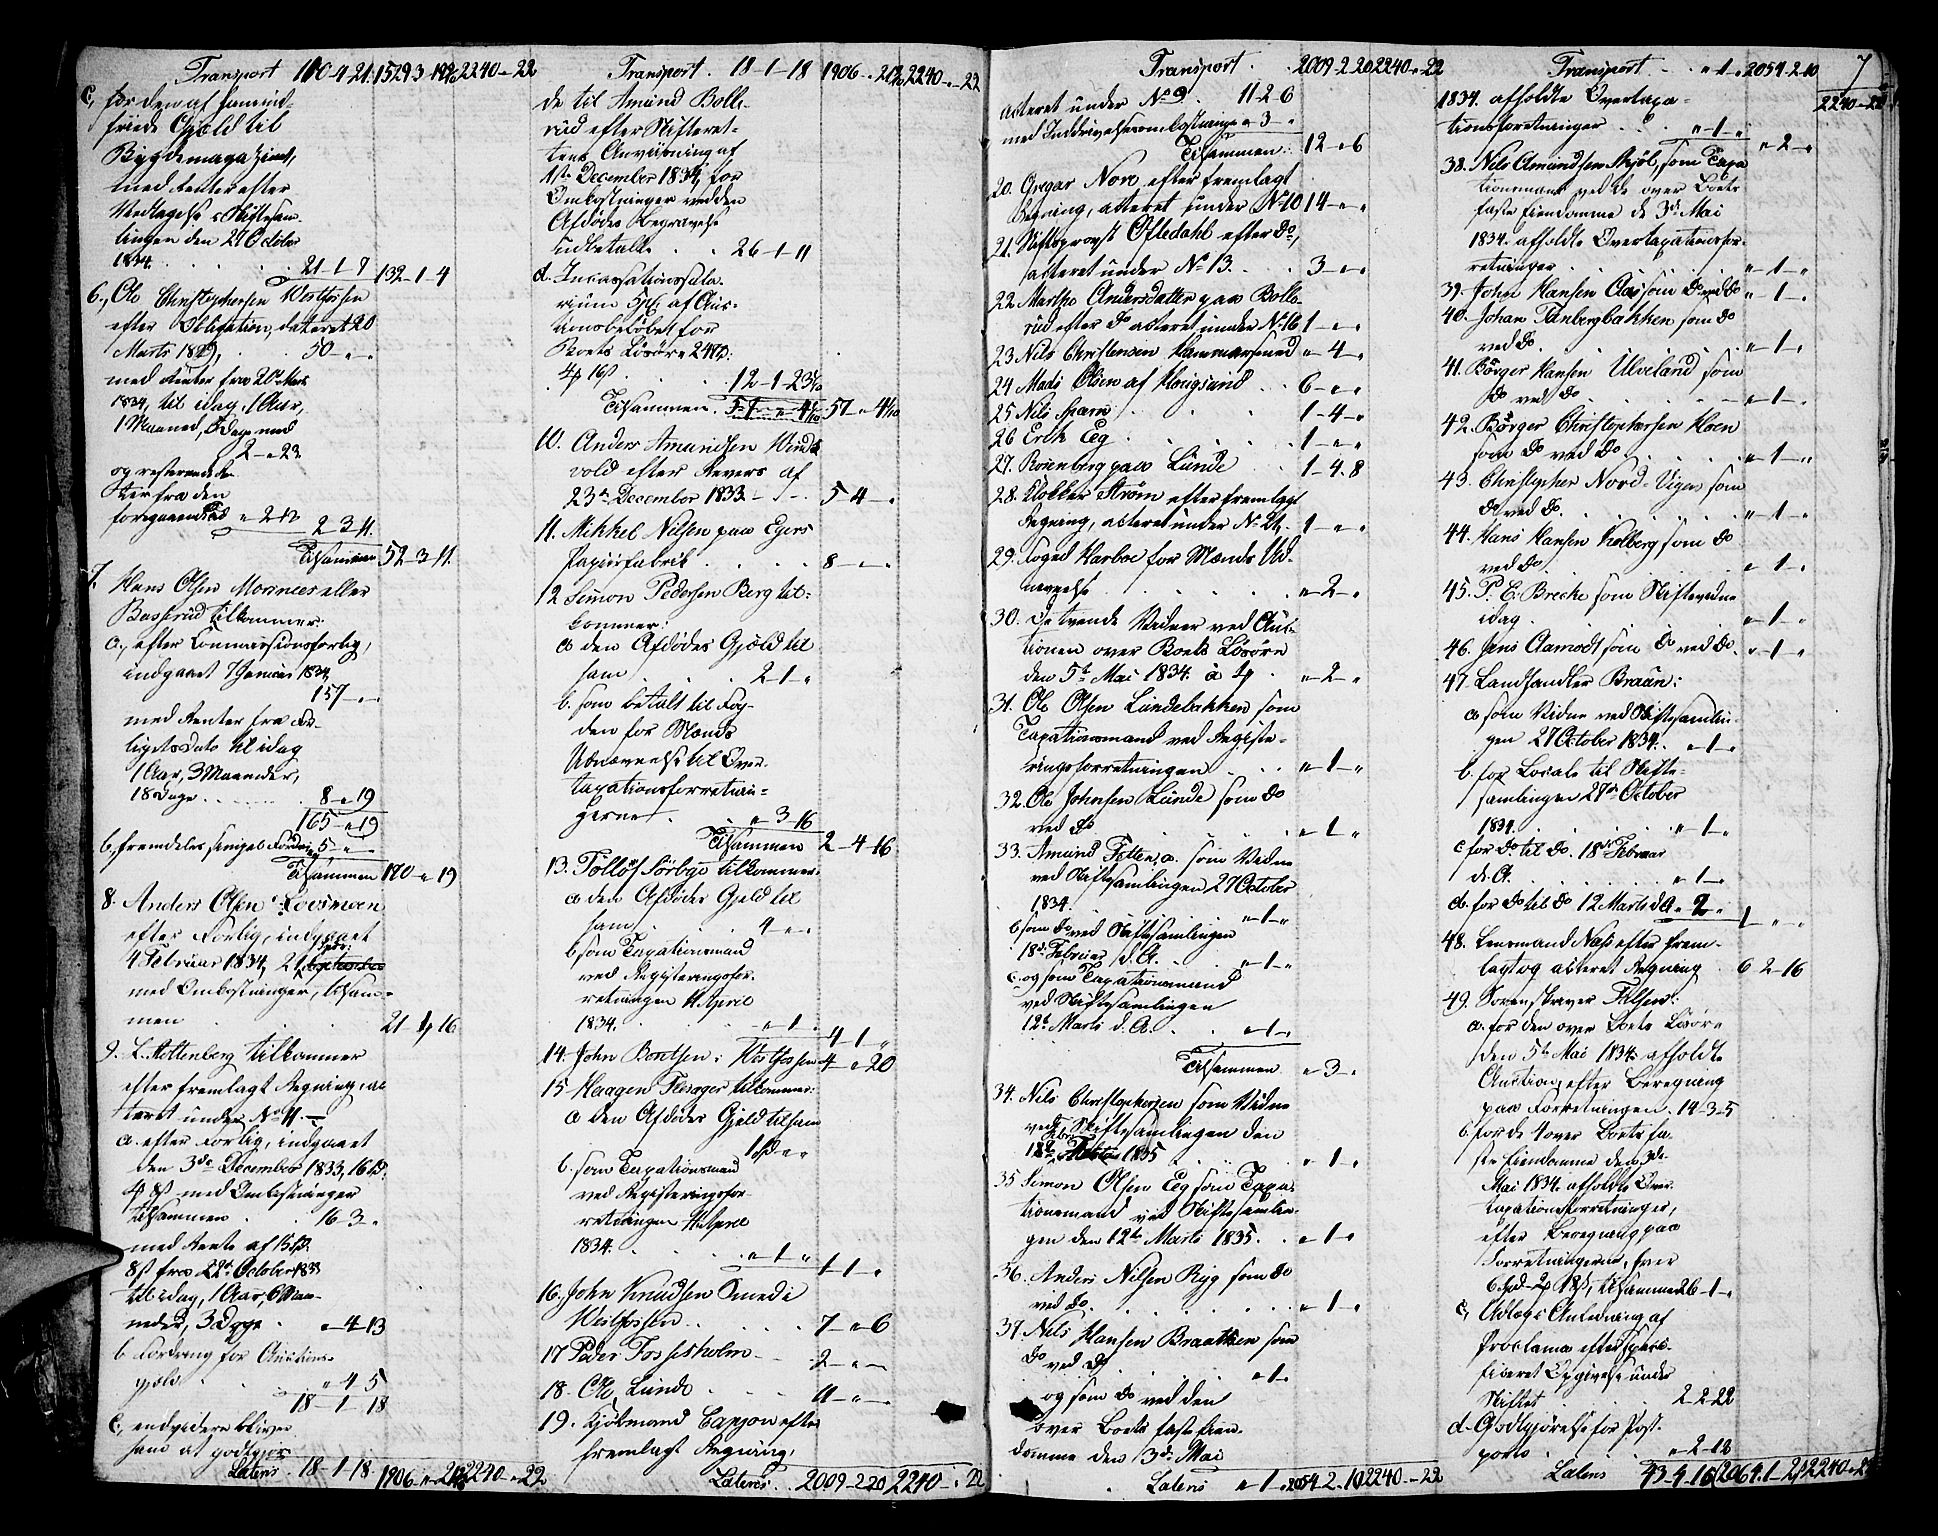 7
Transport 110-4-21. 1529.3-19 2240-"-22
c, for den af hamind-
friede Gjæld til
Bygdemagazinet,
med Renter efter
Vedtagelse i Skiftesam-
lingen den 27 October
1834. . . . 21-1-7 132-1-4
6, Ole Christophersen Vestfossen
efter Obligation, dateret 20
Marts 1829, . . 50-"-"
med Renter fra 20de Marts
1834, til idag, 1 Aar,
1 Maaned, Dage med
2-"-23
og resterende Ren-
ter fra den
foregaaende Tid " 2-12 2-3-11.
Tilsammen 52-3-11.
7. Hans Olsen Mornees eller
Basserud tilkommer:
a, efter Commissionsforlig,
indgaaet 7 Januar 1834,
157-"-"
med Renter fra For-
ligets Dato til idag
1 Aar, 3 Maaneder,
18 Dage . . . . 8-"-19
165-"-19
b, fremdeles simpel Fordring 5-"-"
Tilsammen 170-"-19
8. Anders Olsen Loesmoen
efter Forlig, indgaaet
4 Februar 1834, 21
med Omkostninger, tilsam-
men . . . 21-4-16
9. L. Mettenberg tilkommer
efter fremlagt Regning, ac-
teret under No 11.
a. efter Forlig, indgaaet
den 3de December 1833, 16 Spd:
4 8ß med Omkostninger
tilsammen . . 16-3-"
med Rente af 15 Spd.
8ß fra 22de October 1833
til idag, 1 Aar, 6 Maa-
neder, 3 Dage . "-4-13
b Fordring for Auctions-
gjæld . . . " 4-5
18-1-18
c, endvidere bliver
ham at godtgjøre
Lateris . 18-1-18 1906-"-21 2240-"-22
Transport . 18-1-18 1906-"-21 2240-"-22
de til Amund Bolle-
rud efter Skifteret-
tens Anviisning af
1ste December 1834, for
Omkostninger ved den
Afdødes Begravelse
udbetalte . . . 26-1-11
d. Incassationssala-
rium 5 pC af Auc-
tionsbeløbet for
Boets Løsøre 247 Spd:
4 16ß . . . 12-1-23
Tilsammen . 57-"-4 57-"-4
10. Anders Amundsen Vinds-
vold efter Revers af
23de December 1833 - - . 5-4-"
11. Mikkel Nilsen paa Egers
Papiirfabrik . . . . 8-"-"
12 Simon Pedersen Berg til-
kommer:
a den Afdødes Gjæld til
ham . . . 2-1-"
b. som betalt til Fog-
den for Mænds
Udnævnelse til Over-
taxationsforretnin-
gerne . . "-3-16
Tilsammen 2-4-16
13. Tollof Sørbye tilkommer:
a den Afdødes Gjeld til
ham . . . 4-"-"
b som Taxationsmand
ved Registeringsfor-
retningen 11 April
1834. . . . "-1-" 4-1-"
14. John Bentsen i Vestfossen 4-"-20
15 Haagen Flesager tilkommer:
a den Afdødes Gjeld til ham
1 Spd-"-"
b. som Taxationsmand
ved Registeringsfor-
retningen 11 April
1834. . . . "-1-" 1-1-"
16. John Knudsen Smed i
Vestfossen . . . 7-"-6
17 Peder Fossesholm - . 2-"-"
18. Ole Lunde . . . 4-"-"
19. Kjøbmand Capjon efter
fremlagt Regning,
Lateris . . 2009-2-20 2240-"-22
Transport . . 2009-2-20 2240-"-22
acteret under No 9. 11-2-6
med Inddrivelsesomkostninger " 3-"
Tilsammen . 12-"-6
20. Gregar Nore efter fremlagt
Regning, acteret under No 10 14-"-"
21. Stiftsprovst Oftedahl efter do,
acteret under No 13. . . 3-"-"
22. Marthe Andersdatter paa Bolle-
rud efter do acteret under No 16 1-"-"
23 Nils Christensen Hammersmed "-4-"
24 Mads Olsen af Hougsund . . 6-"-"
25 Nils Sparn . . . . 1-4-"
26 Erik Eeg . . . . 1-"-"
27. Rosenberg paa Lunde . 1-4-8
28. Klokker Strøm efter fremlagt
Regning, acteret under No 24 . 1-"-"
29. Foged Harboe for Mænds Ud-
nævnelse . . . . "-2-"
30. De tvende Vidner ved Auc-
tionen over Boets Løsøre
den 5te Mai 1834. à 1 . "-2-"
31. Ole Olsen Lundebakken som
Taxationsmand ved Registe-
ringsforretningen . . . "-1-"
32. Ole Johnsen Lunde som do
ved do . . . . "-1-"
33. Amund Fetten, a. som Vidne
ved Skiftesamlingen 27 October
1834. . . . "-1-"
b som do ved Skiftesamlingen
18de Februar d. A. . "-1-"
c. og som Taxationsmand
ved Skiftesamlingen
12te Marts d. A. . . "-1-"
Tilsammen . "-3-"
34. Nils Christophersen som Vidne
ved Skiftesamlingen den
18de Februar 1835 . . . "-1-"
35 Simon Olsen Eeg som Taxa-
tionsmand ved Skiftesamlin-
gen den 12te Marts 1835. . "-1-"
36. Anders Nilsen Ryg som do
ved do. . . . . "-1-"
37. Nils Hansen Braathen som
do ved do . . . "-1-"
og som do ved den
over Boets faste Eien-
domme den 3de Mai
Lateris "-1-" 2054-2-10 2240-"-22
Transport . . "-1-" 2054-2-10 2240-"-22
1834. afholdte Overtaxa-
tionsforretninger . . "-1-" "-2-"
38. Nils Amundsen Skjøl, som Taxa-
tionsmand ved de over Boets
faste Eiendomme d. 3de Mai
1834. afholdte Overtaxationsfor-
retninger . . . . "-1-"
39. John Hansen Aas som do ved do "-1-"
40. Johan Tanbergbakken som do
ved do. . . . . "-1-"
41. Børger Hansen Ulveland som
do ved do . . . . "-1-"
42. Børger Christophersen Hoen
som do ved do . . . "-1-"
43. Christopher Nord-Vigen som
do ved do . . . . "-1-"
44. Hans Hansen Kolberg som do
ved do. . . . . "-1-"
45. P. E. Brecke som Skiftevidne
idag . . . . "-1-"
46. Jens Aamodt som do ved do. . "-1-"
47. Landhandler Braun:
a som Vidne ved Skiftesamlin-
gen 27 October 1834. . "-1-"
b. for Locale til Skifte-
samlingen 27de October
1834. . . . "-1-"
c for do til do. 18de Februar
d. A. . . . "-1-"
d. for do til do 12 Marts d A "-2-" 1-"-"
48. Lensmand Næss efter frem-
lagt og acteret Regning . 6-2-16
49. Sorenskriver Falsen:
a. for den over Boets Løsøre
den 5te Mai 1834. afholdte
Auction, efter Beregning
paa Forretningen . 14-3-5
b. for de 4 over Boets fa-
ste Eiendomme den 3die
Mai 1834. afholdte Over-
taxationsforretninger,
efter Beregning paa
Forretningerne, hver
6 Spd-2 18ß, tilsammen 26-1-"
c, Udlagt Anledning af
Proclama efter speci-
ficeret Opgivelse under
Skiftet . . . 2-2-22
d. Godtgjørelse for Post-
porto . . . "-2-12
Lateris 43-4-16 2064.1-2 2240-"-22